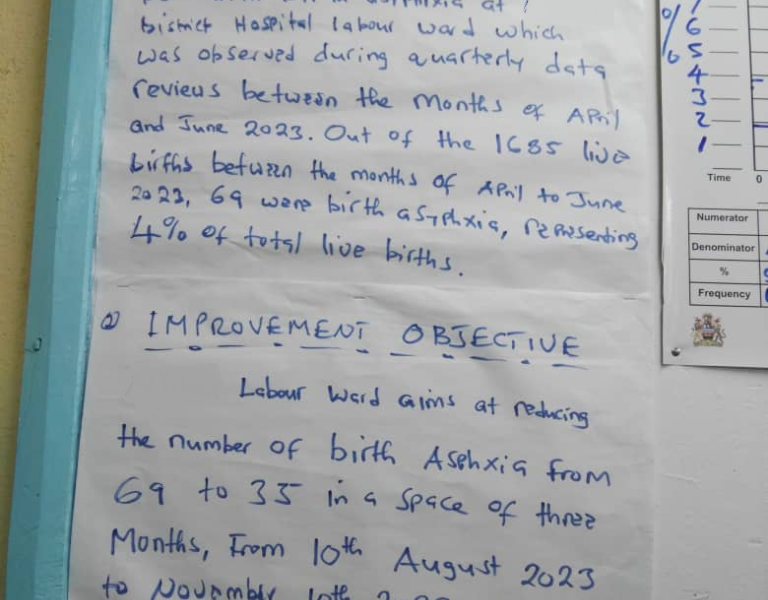 District Hospital labour ward which
was observed during quarterly data
reviews between the months of April
and June 2023. Out of the 1685 live
births between the months of April to June
2023, 69 were birth asyphxia, representing
4% of total live births.
② IMPROVEMENT OBJECTIVE
Labour Ward aims at reducing
the number of birth Asphxia from
69 to 35 in a space of three
Months, From 10th August 2023
to November 10th
%
6
5
4
3
2
1
Time 0
Numerator
Denominator
%
Frequency